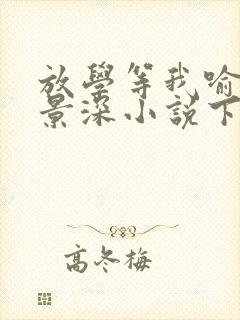 放學等我喻
景深小說下
高冬梅